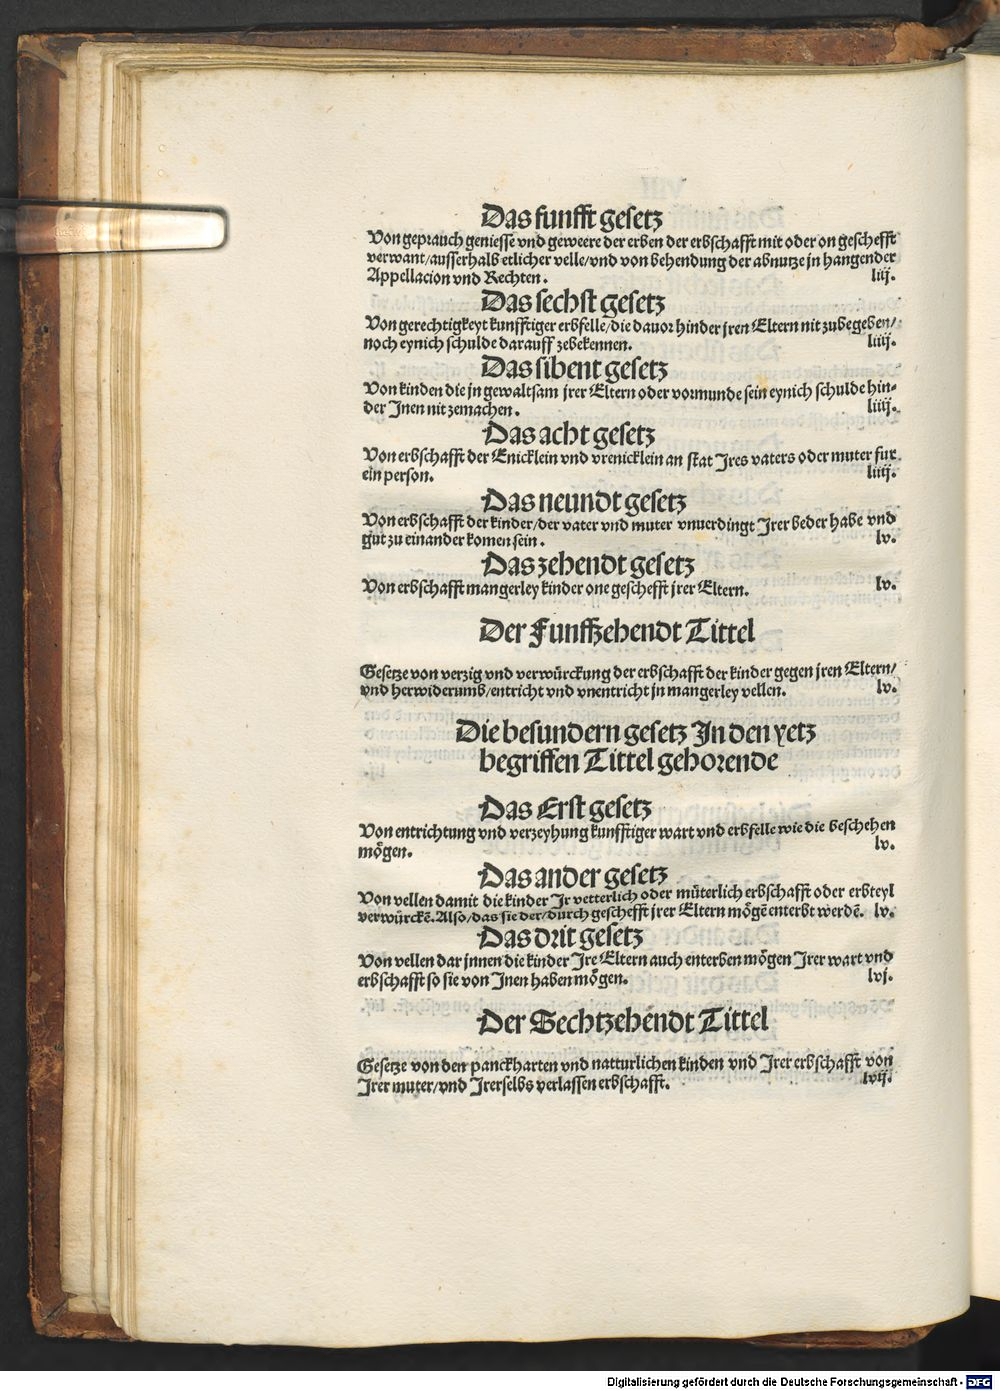 Das funfft gesetz
Von geprauch geniesse vnd geweere der erben der erbschafft mit oder on geschefft
verwant/ausserhalb etlicher velle/vnd von behendung der abnutze jn hangender
Appellacion vnd Rechten. liij.
Das sechst gesetz
Von gerechtigkeyt kunfftiger erbfelle/die dauor hinder jren Eltern nit zubegeben/
noch eynich schulde darauff zebekennen. liiij.
Das sibent gesetz
Von kinden die jn gewaltsam jrer Eltern oder vormunde sein eynich schulde hin-
der Jnen nit zemachen. liiij.
Das acht gesetz
Von erbschafft der Enicklein vnd vrenicklein an stat Jres vaters oder muter fur
ein person. liiij.
Das neundt gesetz
Von erbschafft der kinder/der vater vnd muter vnuerdingt Jrer beder habe vnd
gut zu einander komen sein. lv.
Das zehendt gesetz
Von erbschafft mangerley kinder one geschefft jrer Eltern. lv.
Der Funfftzehendt Tittel
Gesetze von verzig vnd verwürckung der erbschafft der kinder gegen jren Eltern/
vnd herwiderumb/entricht vnd vnentricht jn mangerley vellen. lv.
Die besundern gesetz Jn den yetz
begriffen Tittel gehorende
Das Erst gesetz
Von entrichtung vnd verzeyhung kunfftiger wart vnd erbfelle wie die beschehen
mögen. lv.
Das ander gesetz
Von vellen damit die kinder Jr vetterlich oder müterlich erbschafft oder erbteyl
verwürckē. Also/das sie der/durch geschefft jrer Eltern mögē enterbt werdē. lv.
Das drit gesetz
Von vellen dar jnnen die kinder Jre Eltern auch enterben mögen Jrer wart vnd
erbschafft so sie von Jnen haben mögen. lvj.
Der Sechtzehendt Tittel
Gesetze von den panckharten vnd natturlichen kinden vnd Jrer erbschafft von
Jrer muter/vnd Jrerselbs verlassen erbschafft. lvij.
Digitalisierung gefördert durch die Deutsche Forschungsgemeinschaft - DFG